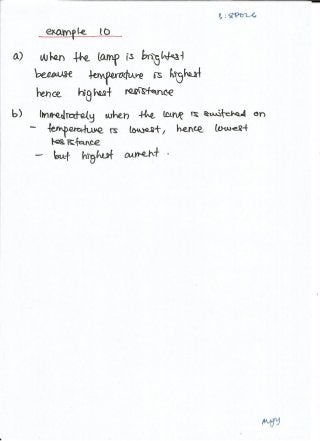 example 10
a) when the lamp is brightest
because temperature is highest
hence highest resistance
b) Immediately when the lamp is switched on
- temperature is lowest, hence lowest
resistance
- but highest current.